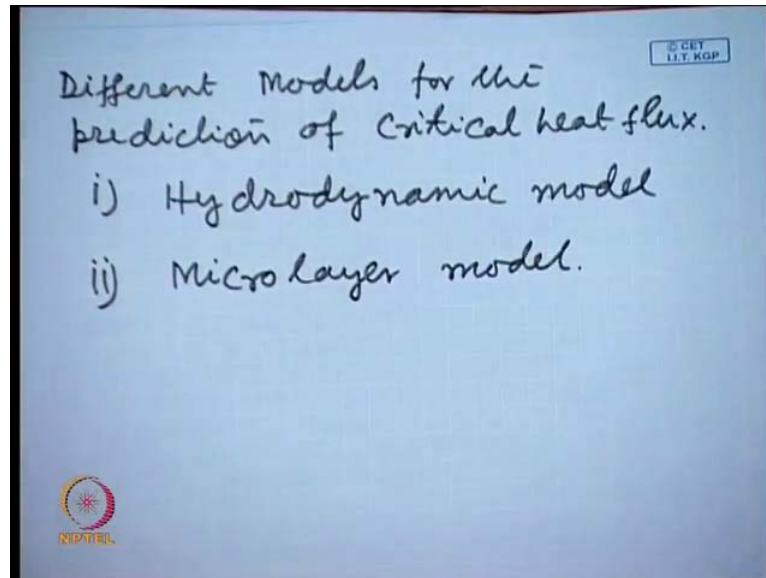 © CET
I.I.T. KGP
Different Models for the
prediction of Critical heat flux.
i) Hydrodynamic model
ii) Microlayer model.
NPTEL